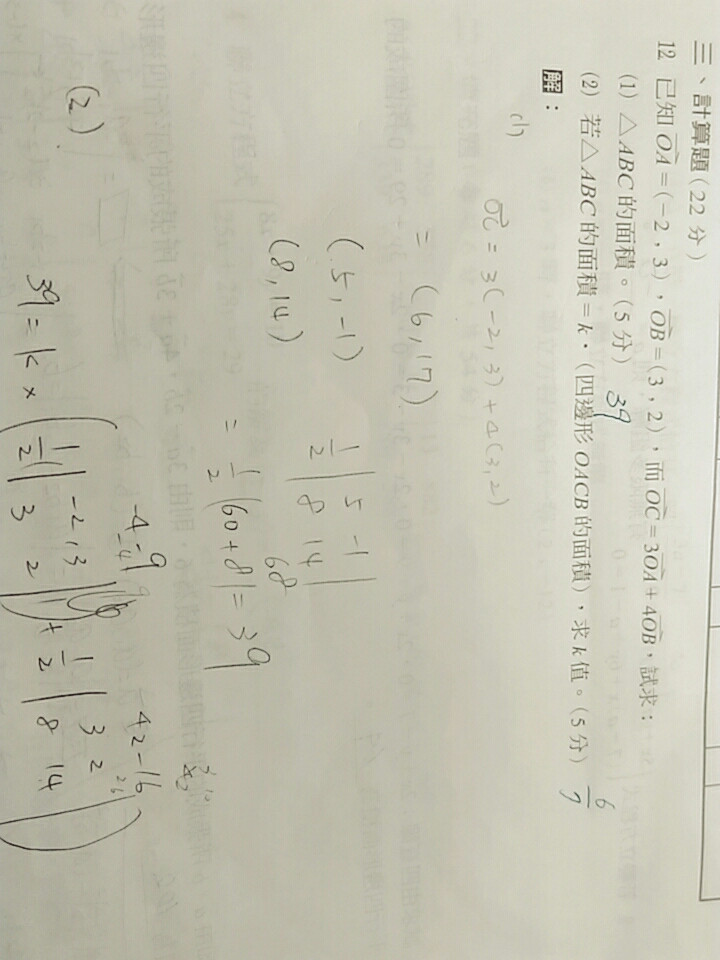 三、計算題(22分)
12 已知OA=(-2,3),OB=(3,2),而OC=3OA+4OB,試求:
(1) △ABC的面積。(5分) 39
(2) 若△ABC的面積=k·(四邊形OACB的面積),求k值。(5分) 6/7
解:
(1)
OC = 3(-2,3)+4(3,2)
= (6,17)
(5,-1)
(8,14)
1/2 | 5 -1
8 14 |
68
= 1/2 |60+8| = 39
(2)
-4-9
39 = k × ( 1/2 | -2,3
3 2 | + 1/2 | 3 2
8 14 | )
42-16
26